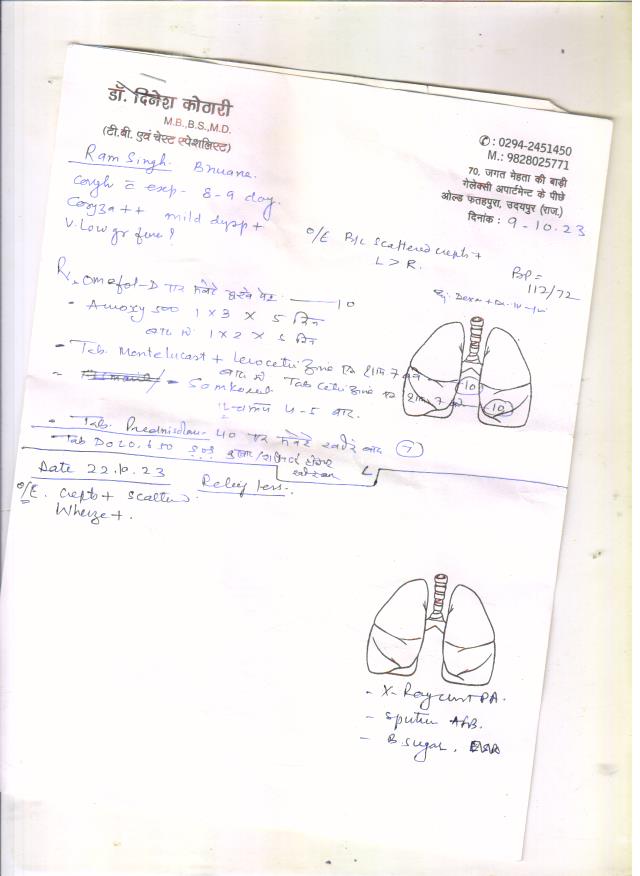 डॉ. दिनेश कोठारी
M.B.,B.S.,M.D.
(टी.बी. एवं चेस्ट स्पेशलिस्ट)
✆ : 0294-2451450
M.: 9828025771
70, जगत मेहता की बाड़ी
गेलेक्सी अपार्टमेन्ट के पीछे
ओल्ड फतहपुरा, उदयपुर (राज.)
दिनांक : 9-10.23
Ram Singh. Bhuana.
Cough c̄ exp- 8-9 day.
Coryza ++ mild dysp +
V. Low gr fever
O/E B/L Scattered crepts +
L > R.
BP =
112/72
Rx. Omefol-D 10
- Amoxy 500 1 x 3 x 5 दिन
बाद में 1 x 2 x 5 दिन
- Tab. Montelucast + Levocetrizine शाम 7 बजे 10
बाद में Tab Cetrizine शाम 7 बजे 10
4-5 बार.
- Tab. Prednisolone 40 बाद 7
- Tab DOLO. 650 SOS
Date 22.10.23 Relief less.
O/E. Crepts + scattered
Wheeze +.
- X-Ray chest PA.
- Sputum AFB.
- B. Sugar.